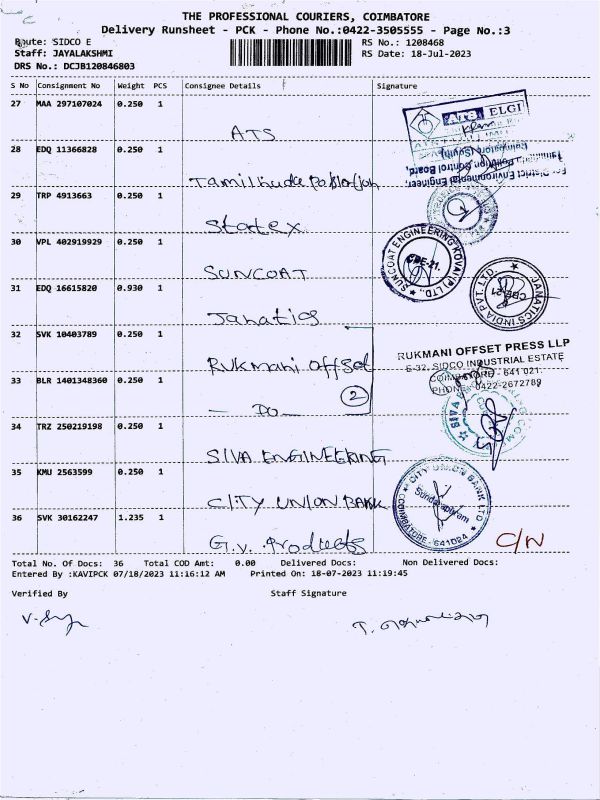 THE PROFESSIONAL COURIERS, COIMBATORE
Delivery Runsheet - PCK - Phone No.:0422-3505555 - Page No.:3
Route: SIDCO E
RS No.: 1208468
Staff: JAYALAKSHMI
RS Date: 18-Jul-2023
DRS No.: DCJB120846803
S No Consignment No Weight PCS Consignee Details Signature
27 MAA 297107024 0.250 1
ATS
ATS ELGI
28 EDQ 11366828 0.250 1
Tamilnadu
District Environmental Engineer,
Pollution Control Board,
Coimbatore (South)
29 TRP 4913663 0.250 1
Statex
30 VPL 402919929 0.250 1
SUNCOAT
SUNCOAT ENGINEERING KOVAI (P) LTD.,
CBE-21.
31 EDQ 16615820 0.930 1
Janatics
JANATICS INDIA PVT. LTD.
CBE-21
32 SVK 10403789 0.250 1
Rukmani offset
RUKMANI OFFSET PRESS LLP
E-32, SIDCO INDUSTRIAL ESTATE
COIMBATORE - 641 021.
PHONE: 0422-2672789
33 BLR 1401348360 0.250 1
— DO —
2
34 TRZ 250219198 0.250 1
SIVA ENGINEERING
SIVA
35 KMU 2563599 0.250 1
CITY UNION BANK
CITY UNION BANK LTD
Sundarapuram
COIMBATORE - 641024
36 SVK 30162247 1.235 1
G.V. Products
C/N
Total No. Of Docs: 36 Total COD Amt: 0.00 Delivered Docs: Non Delivered Docs:
Entered By :KAVIPCK 07/18/2023 11:16:12 AM Printed On: 18-07-2023 11:19:45
Verified By Staff Signature